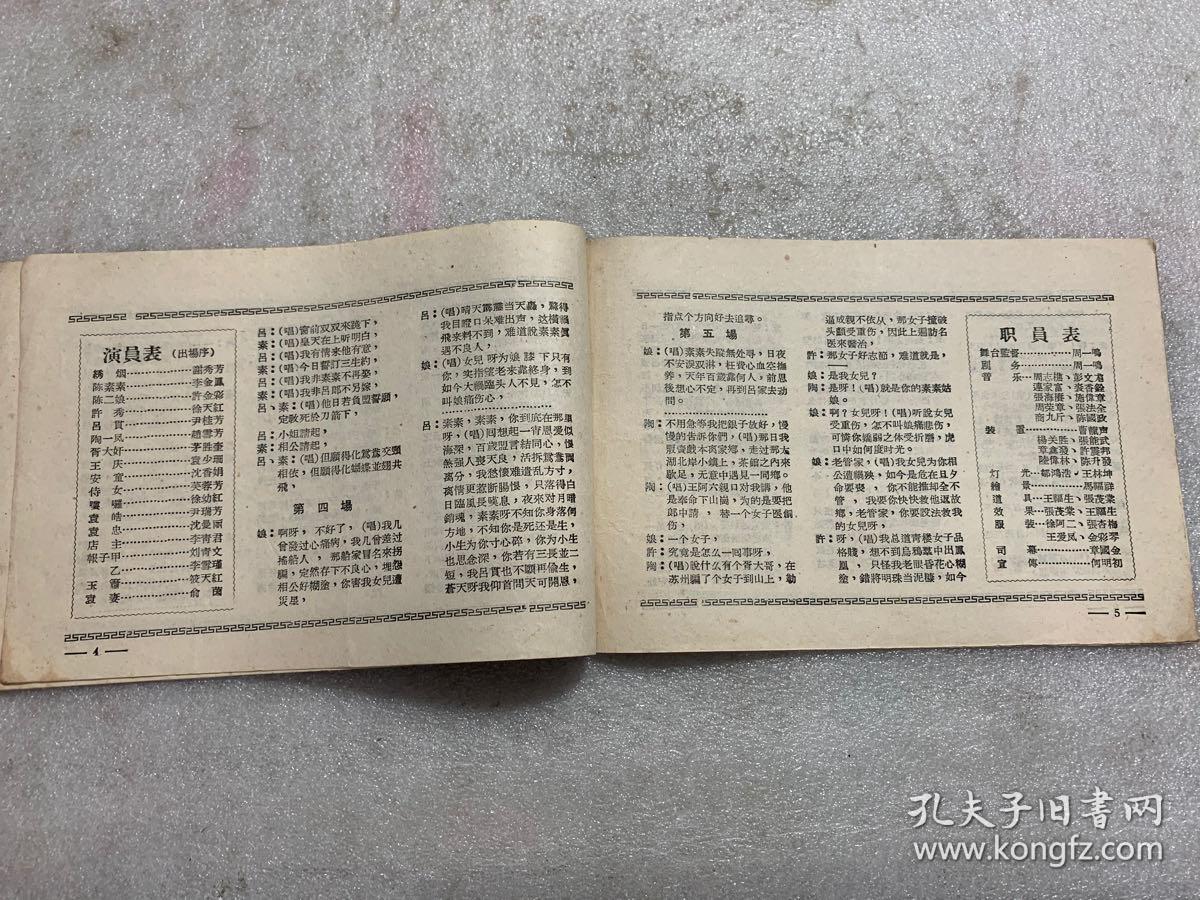 演員表 (出場序)
綉烟………謝秀芳
陈素素………李金鳳
陈二娘………許金彩
許秀………徐天紅
呂貢………尹桂芳
陶一凤………趙雪芳
胥大好………茅胜奎
王庆………袁少珊
安童………沈香娟
侍女………芙蓉芳
嘍囉………徐幼紅
袁皓………尹瑞芳
袁忠………沈曼丽
店主………李青君
報子甲………刘青文
乙………李雪瑾
玉簫………筱天紅
袁妻………俞蘭
呂：(唱)窗前双双來跪下，
素：(唱)皇天在上听明白，
呂：(唱)我有情來他有意，
素：(唱)今日誓訂三生約，
呂：(唱)我非素素不再娶，
素：(唱)我非呂郎不另嫁，
呂、素：(唱)他日若負盟誓願，
定教死於刀箭下，
呂：小姐請起，
素：相公請起，
呂、素：(唱)但願得化鴛鴦交頸
相依，但願得化蝴蝶並翅共
飛，
第四場
娘：啊呀，不好了，(唱)我几
曾發过心痛病，我几曾差过
搖船人，那船家冒名來拐
騙，定然存下不良心，埋怨
相公好糊塗，你害我女兒遭
災星，
呂：(唱)晴天霹靂当天轟，驚得
我目瞪口呆难出声，这横禍
飛來料不到，难道說素素眞
遇不良人，
娘：(唱)女兒呀为娘膝下只有
你，实指望老來靠終身，到
如今大禍臨头人不見，怎不
叫娘痛伤心，
………………………
呂：素素，素素，你到底在那里
呀，(唱)囘想起一宵恩爱似
海深，百歲盟言結同心，恨
煞强人喪天良，活拆鴛鴦兩
离分，我愁懷难遣乱方寸，
离情更惹断腸恨，只落得白
日臨風長嘆息，夜來对月暗
銷魂，素素呀不知你身落何
方地，不知你是死还是生，
小生为你寸心碎，你为小生
也思念深，你若有三長並二
短，我呂貢也不願再偸生，
蒼天呀我仰首問天可開恩，
— 4 —
指点个方向好去追尋。
第五場
娘：(唱)素素失蹤無处尋，日夜
不安淚双淋，無費心血空撫
养，天年百歲靠何人，前思
後想心不定，再到呂家去动
問。
………………………
陶：不用急等我把銀子放好，慢
慢的告訴你們，(唱)那日我
賑賣戲本离家鄉，走过那太
湖北岸小鎮上，茶館之內來
歇足，无意中遇見一同鄉。
陶：(唱)王阿六親口对我講，他
是奉命下山崗，为的是要把
郎中請，替一个女子医創
伤，
娘：一个女子，
許：究竟是怎么一囘事呀，
陶：(唱)說什么有个胥大哥，在
苏州騙了个女子到山上，勒
逼成親不依从，那女子撞破
头顱受重伤，因此上遍訪名
医來醫治，
許：那女子好志節，难道就是，
娘：是我女兒？
陶：是呀！(唱)就是你的素素姑
娘。
娘：啊？女兒呀！(唱)听說女兒
受重伤，怎不叫娘痛悲伤，
可憐你嬌弱之体受折磨，虎
口中如何度时光。
娘：老管家，(唱)我女兒为你相
公遭禍殃，如今是危在旦夕
命要喪，你不能推却全不
管，我要你快快救他返故
鄉，老管家，你要設法救我
的女兒呀，
許：呀，(唱)我总道靑楼女子品
格賤，想不到烏鴉羣中出鳳
凰，只怪我老眼昏花心糊
塗，錯將明珠当泥糠，如今
职員表
舞台監督………周一鳴
剧务………周一鳴
音乐…周志標、彭文君
連家富、裘杏鏗
張海賡、施偉章
周荣章、張法全
商九斤、張國政
裝置………曹龍声
楊关胜、張能武
章鑫發、許雲邦
陸偉林、陈升發
灯光…鄔鴻浩、王林坤
繪景………馬福祥
道具…王福生、張茂棠
效果…張茂棠、王福生
服裝…徐阿二、張杏梅
王爱凤、金彩琴
司幕………章國金
宣傳………何明初
— 5 —
孔夫子旧书网
www.kongfz.com